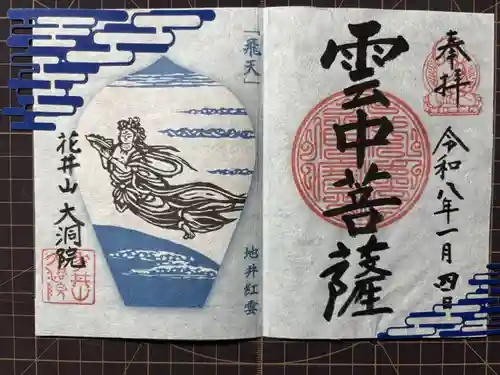 奉拝
雲中菩薩
令和八年一月四日
「飛天」
地井紅雲
花井山 大洞院